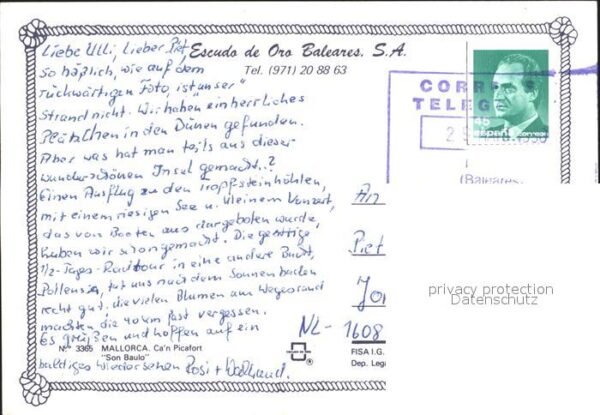 Liebe Ulli, Lieber Piet,
so häßlich, wie auf dem
rückwärtigen Foto, ist "unser"
Strand nicht. Wir haben ein herrliches
Plätzchen in den Dünen gefunden.
Aber was hat man teils aus dieser
wunderschönen Insel gemacht..?
Einen Ausflug zu den Tropfsteinhöhlen,
mit einem riesigen See u. kleinem Konzert,
das von Booten aus dargeboten wurde,
haben wir schon gemacht. Die gestrige
1/2-Tages-Radtour in eine andere Bucht,
Pollensia, tat uns nach dem Sonnenbaden
recht gut, die vielen Blumen am Wegesrand
machten die 40 km fast vergessen.
Es grüßen und hoffen auf ein
baldiges Wiedersehen Rosi +
Escudo de Oro Baleares, S.A.
Tel. (971) 20 88 63
CORREOS
TELEG
45
España correos
(Baleares)
An
Piet
Jor
NL-1608
privacy protection
Datenschutz
N.º 3365 MALLORCA. Ca'n Picafort
"Son Baulo"
FISA I.G.
Dep. Lega